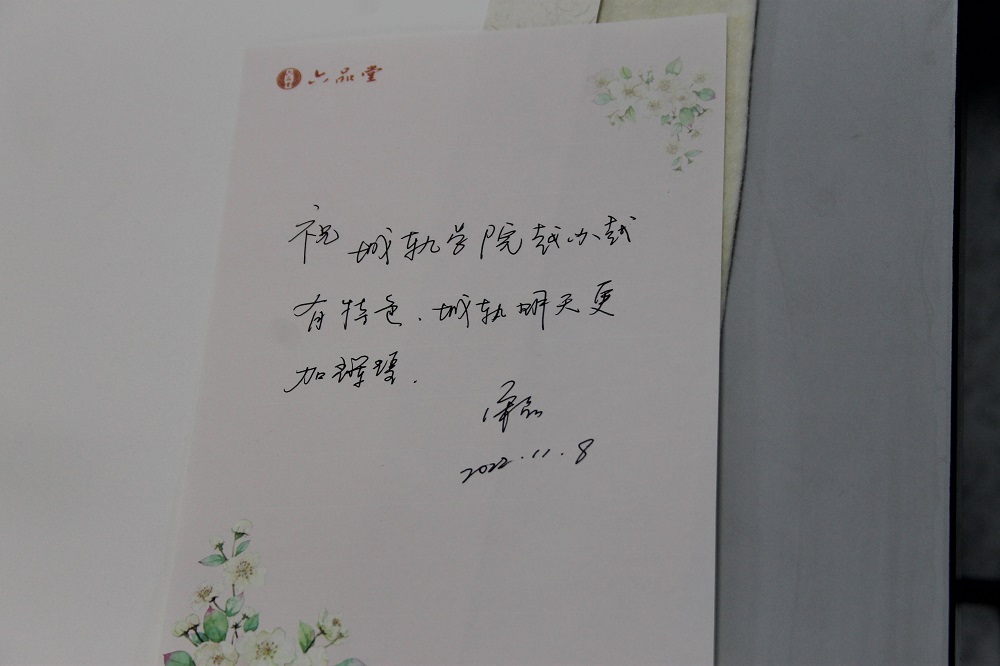 六品堂
祝城轨学院越办越
有特色.城轨明天更
加辉煌.
2022.11.8